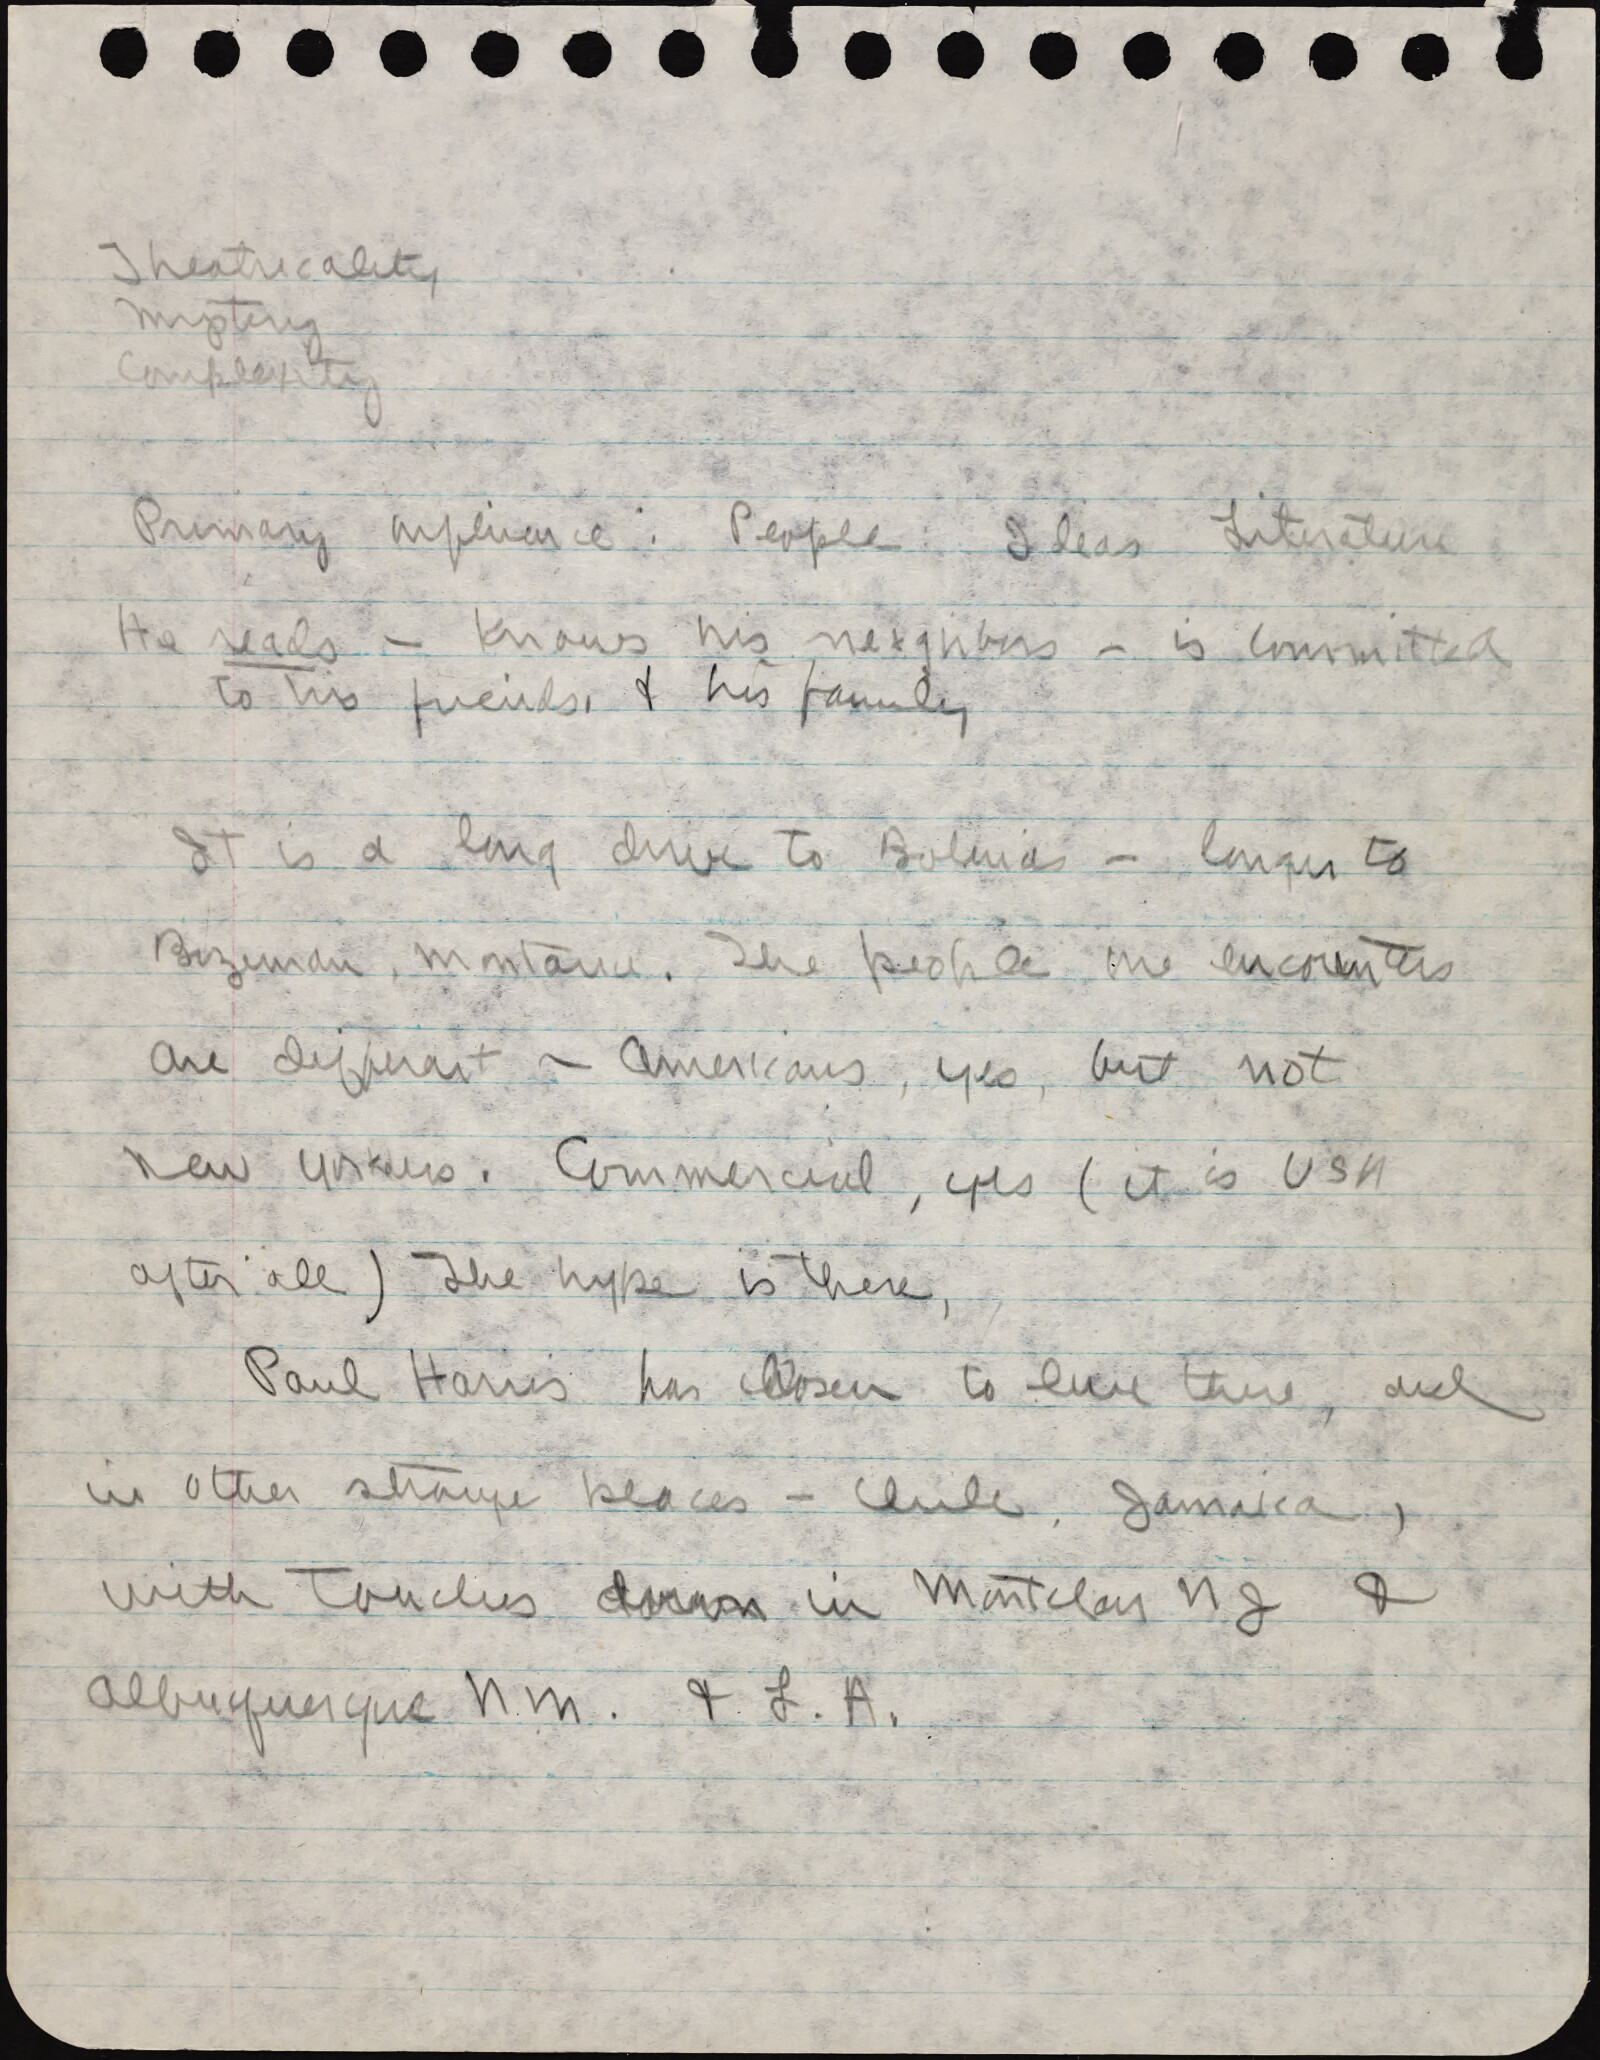 Theatricality
Mystery
Complexity
Primary influence: People Ideas Literature
He reads – knows his neighbors – is committed
to his friends, & his family
It is a long drive to Bolinas – longer to
Bozeman, Montana. The people one encounters
are different – Americans, yes, but not
New Yorkers. Commercial, yes (it is USA
after all) The hype is there,
Paul Harris has chosen to live there, and
in other strange places – Chile, Jamaica,
with touches down in Montclair NJ &
Albuquerque N.M. & L.A.